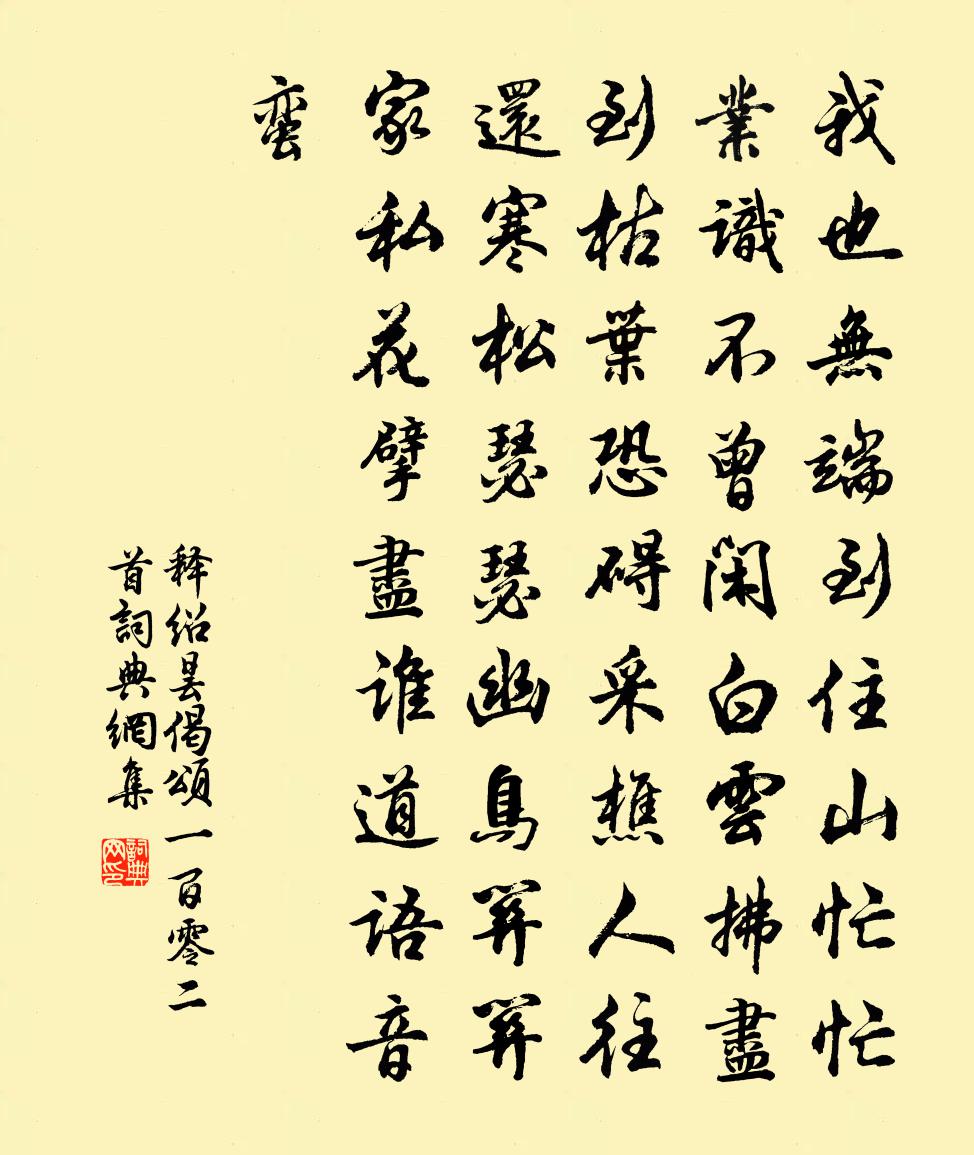 我也無端到住山忙忙
業識不曾閑白雲拂盡
到枯葉恐碍采樵人往
還寒松瑟瑟幽鳥
家私花擘盡誰道語音
蛮
释紹曇偈頌一百零二
首詞典網集
詞典
网印